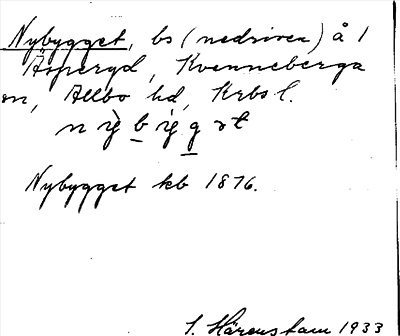 Nybygget, bs (nedriven) å 1
Äspergd, Kvenneberga
sn, Allbo hd, Krbs l.
Nybygget kb 1876.
S. Härenstam 1933